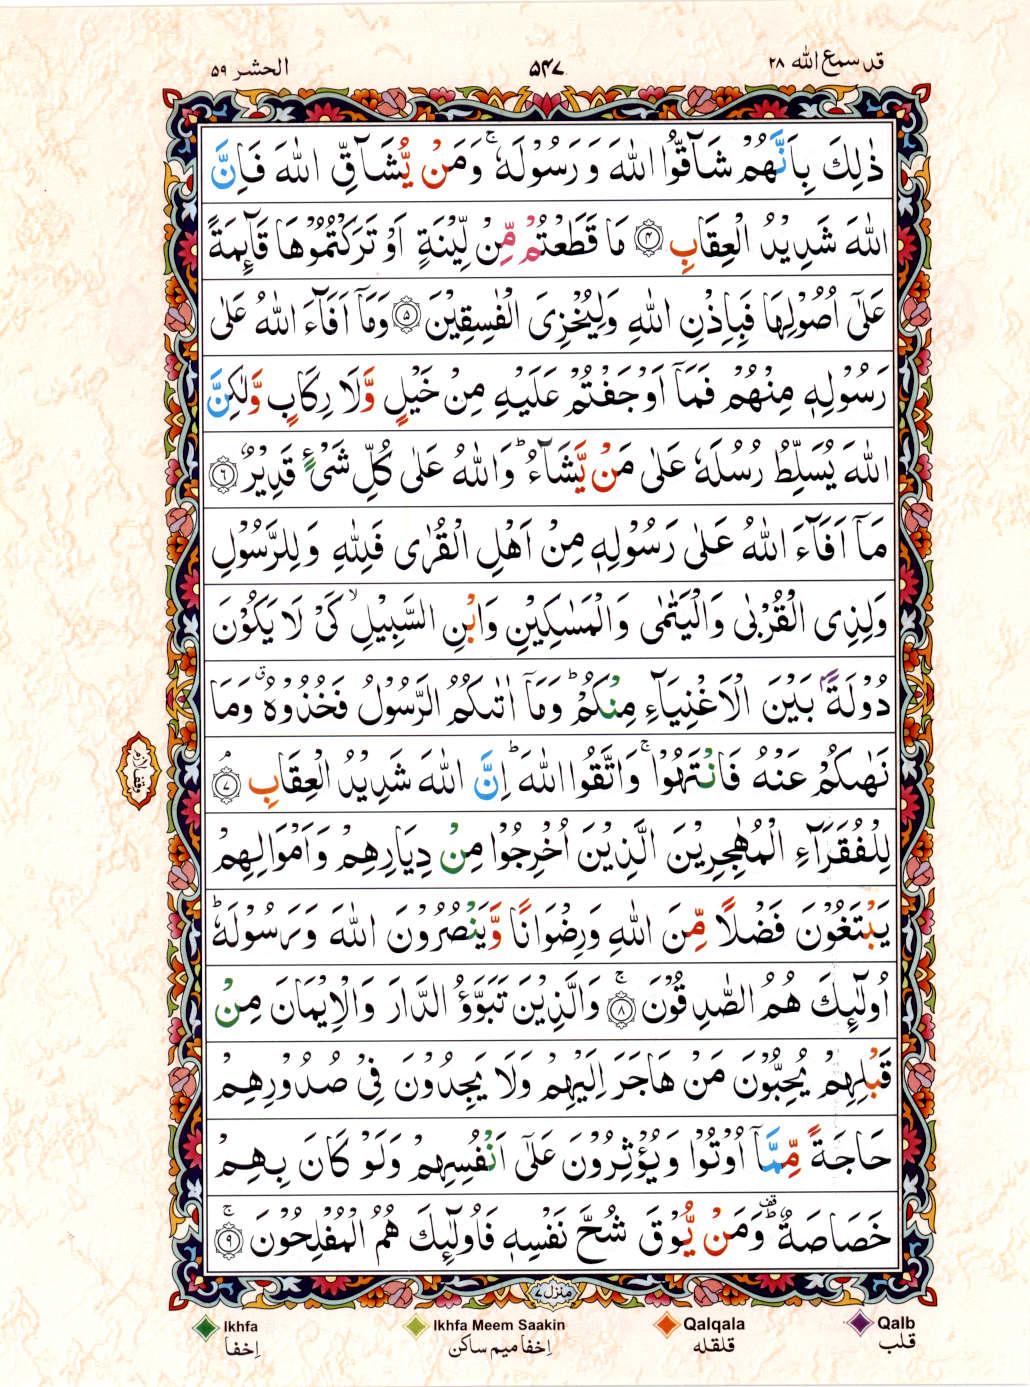 الحشر ۵۹
۵۴۷
قد سمع الله ۲۸
ذٰلِكَ بِاَنَّهُمْ شَآقُّوا اللّٰهَ وَ رَسُوْلَهٗ ۚ وَمَنْ يُّشَآقِّ اللّٰهَ فَاِنَّ
اللّٰهَ شَدِيْدُ الْعِقَابِ ۴ مَا قَطَعْتُمْ مِّنْ لِّيْنَةٍ اَوْ تَرَكْتُمُوْهَا قَآئِمَةً
عَلٰٓى اُصُوْلِهَا فَبِاِذْنِ اللّٰهِ وَلِيُخْزِىَ الْفٰسِقِيْنَ ۵ وَمَآ اَفَآءَ اللّٰهُ عَلٰى
رَسُوْلِهٖ مِنْهُمْ فَمَآ اَوْجَفْتُمْ عَلَيْهِ مِنْ خَيْلٍ وَّلَا رِكَابٍ وَّلٰكِنَّ
اللّٰهَ يُسَلِّطُ رُسُلَهٗ عَلٰى مَنْ يَّشَآءُ ؕ وَاللّٰهُ عَلٰى كُلِّ شَىْءٍ قَدِيْرٌ ۶
مَآ اَفَآءَ اللّٰهُ عَلٰى رَسُوْلِهٖ مِنْ اَهْلِ الْقُرٰى فَلِلّٰهِ وَ لِلرَّسُوْلِ
وَلِذِى الْقُرْبٰى وَالْيَتٰمٰى وَالْمَسٰكِيْنِ وَابْنِ السَّبِيْلِ ۙ كَىْ لَا يَكُوْنَ
دُوْلَةًۢ بَيْنَ الْاَغْنِيَآءِ مِنْكُمْ ؕ وَمَآ اٰتٰىكُمُ الرَّسُوْلُ فَخُذُوْهُ ۗ وَمَا
نَهٰىكُمْ عَنْهُ فَانْتَهُوْا ۚ وَاتَّقُوا اللّٰهَ ؕ اِنَّ اللّٰهَ شَدِيْدُ الْعِقَابِ ۷ۘ
وقف لازم
لِلْفُقَرَآءِ الْمُهٰجِرِيْنَ الَّذِيْنَ اُخْرِجُوْا مِنْ دِيَارِهِمْ وَاَمْوَالِهِمْ
يَبْتَغُوْنَ فَضْلًا مِّنَ اللّٰهِ وَرِضْوَانًا وَّيَنْصُرُوْنَ اللّٰهَ وَ رَسُوْلَهٗ ؕ
اُولٰٓئِكَ هُمُ الصّٰدِقُوْنَ ۸ۚ وَالَّذِيْنَ تَبَوَّؤُ الدَّارَ وَالْاِيْمَانَ مِنْ
قَبْلِهِمْ يُحِبُّوْنَ مَنْ هَاجَرَ اِلَيْهِمْ وَلَا يَجِدُوْنَ فِىْ صُدُوْرِهِمْ
حَاجَةً مِّمَّآ اُوْتُوْا وَيُؤْثِرُوْنَ عَلٰٓى اَنْفُسِهِمْ وَلَوْ كَانَ بِهِمْ
خَصَاصَةٌ ؕ قف وَمَنْ يُّوْقَ شُحَّ نَفْسِهٖ فَاُولٰٓئِكَ هُمُ الْمُفْلِحُوْنَ ۹ۚ
منزل ۷
Ikhfa
Ikhfa Meem Saakin
Qalqala
Qalb
اِخفا
اِخفا میم ساکن
قلقله
قلب